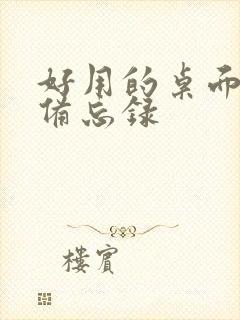 好用的桌面
备忘录
楼宾